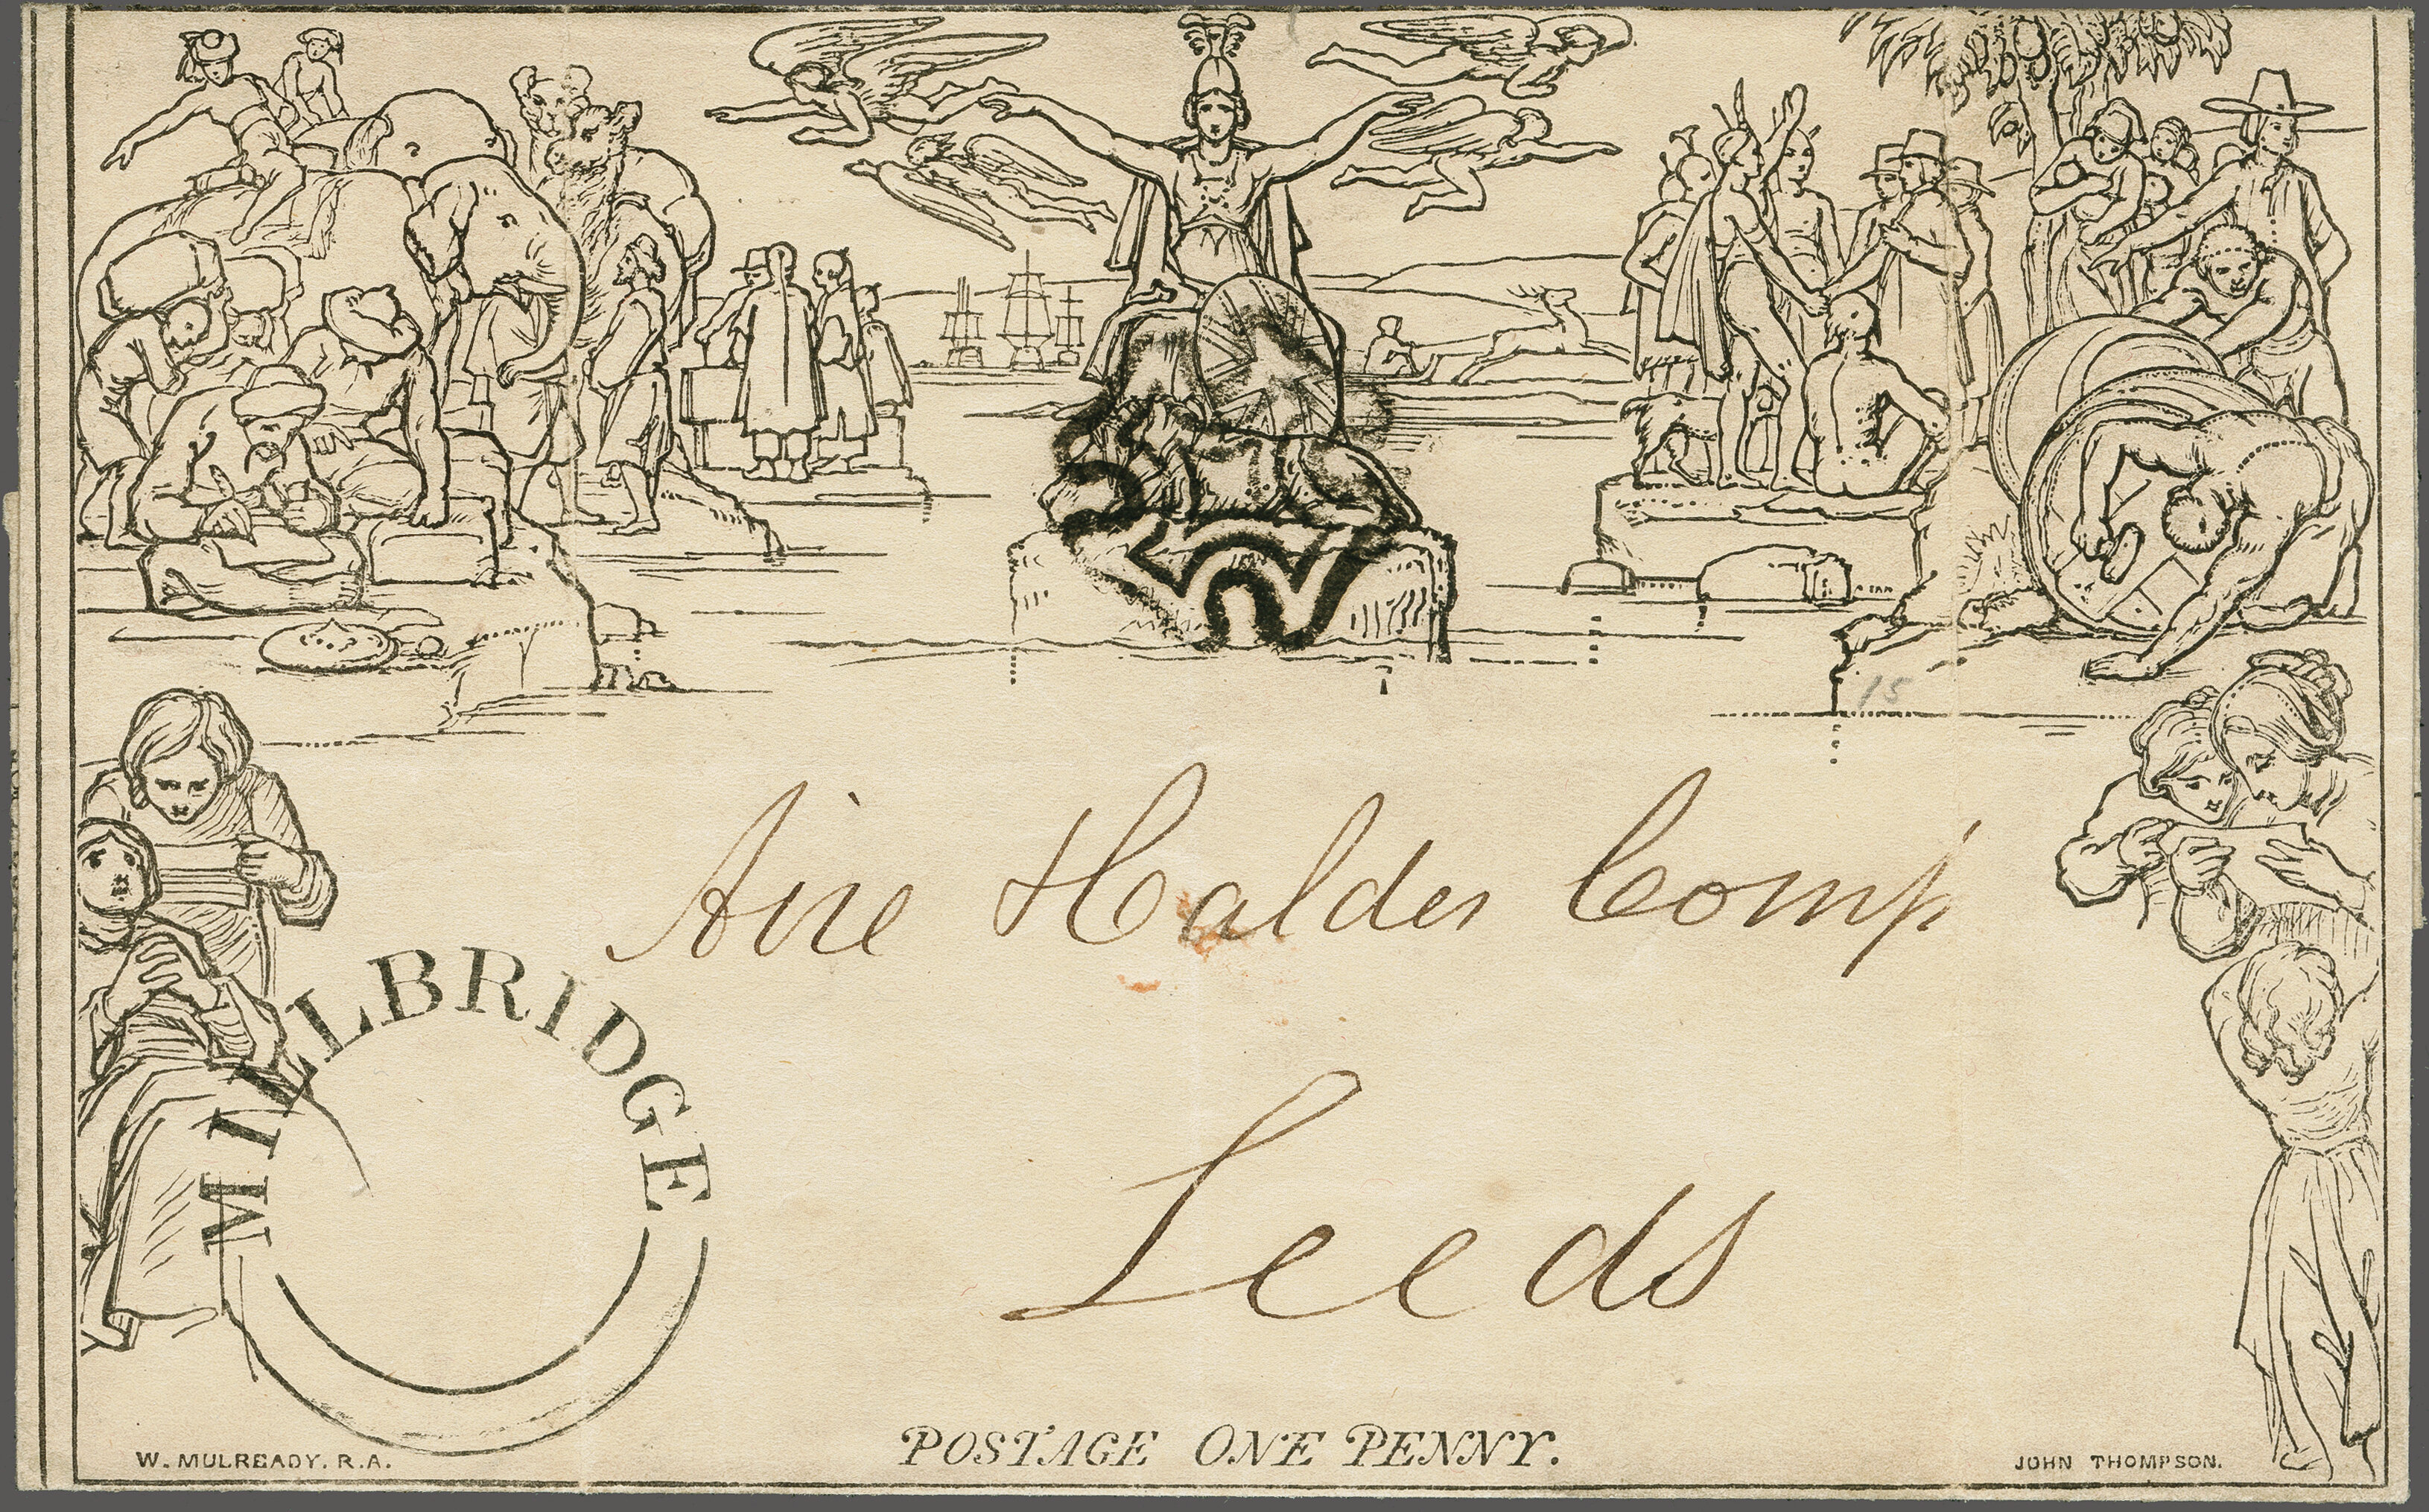 15
Aire & Calder Comp
Leeds
MILLBRIDGE
POSTAGE ONE PENNY.
W. MULREADY. R.A.
JOHN THOMPSON.